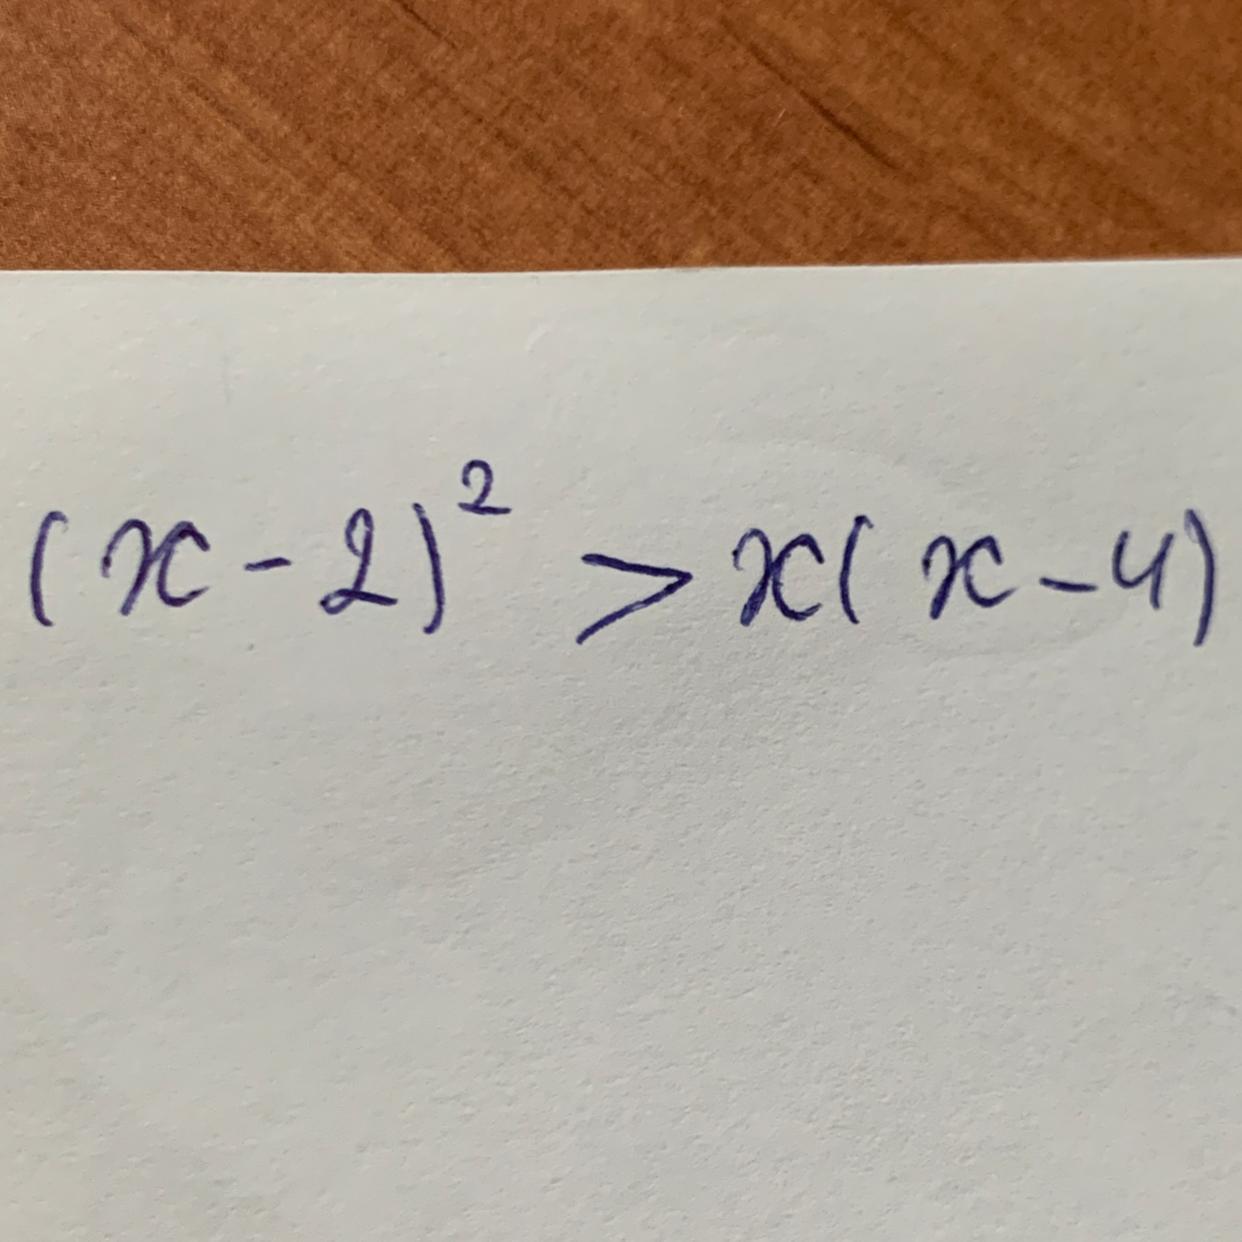 (x - 2)² > x(x - 4)